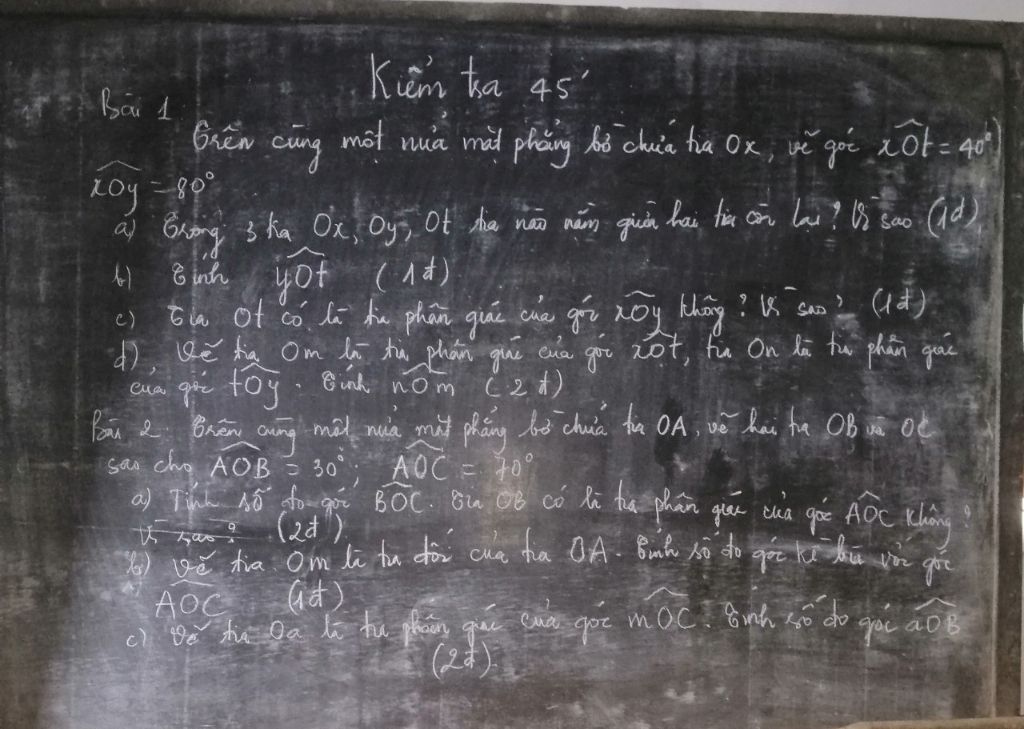 Kiểm tra 45'
Bài 1
Trên cùng một nửa mặt phẳng bờ chứa tia Ox, vẽ góc xOt = 40°,
xOy = 80°
a) Trong 3 tia Ox, Oy, Ot tia nào nằm giữa hai tia còn lại? Vì sao (1đ)
b) Tính yOt (1đ)
c) Tia Ot có là tia phân giác của góc xOy không? Vì sao? (1đ)
d) Vẽ tia Om là tia phân giác của góc xOt, tia On là tia phân giác
của góc tOy. Tính nOm (2đ)
Bài 2. Trên cùng một nửa mặt phẳng bờ chứa tia OA, vẽ hai tia OB và OC
sao cho AOB = 30°; AOC = 70°
a) Tính số đo góc BOC. Tia OB có là tia phân giác của góc AOC không?
Vì sao? (2đ)
b) Vẽ tia Om là tia đối của tia OA. Tính số đo góc kề bù với góc
AOC (1đ)
c) Vẽ tia Oa là tia phân giác của góc mOC. Tính số đo góc aOB
(2đ)